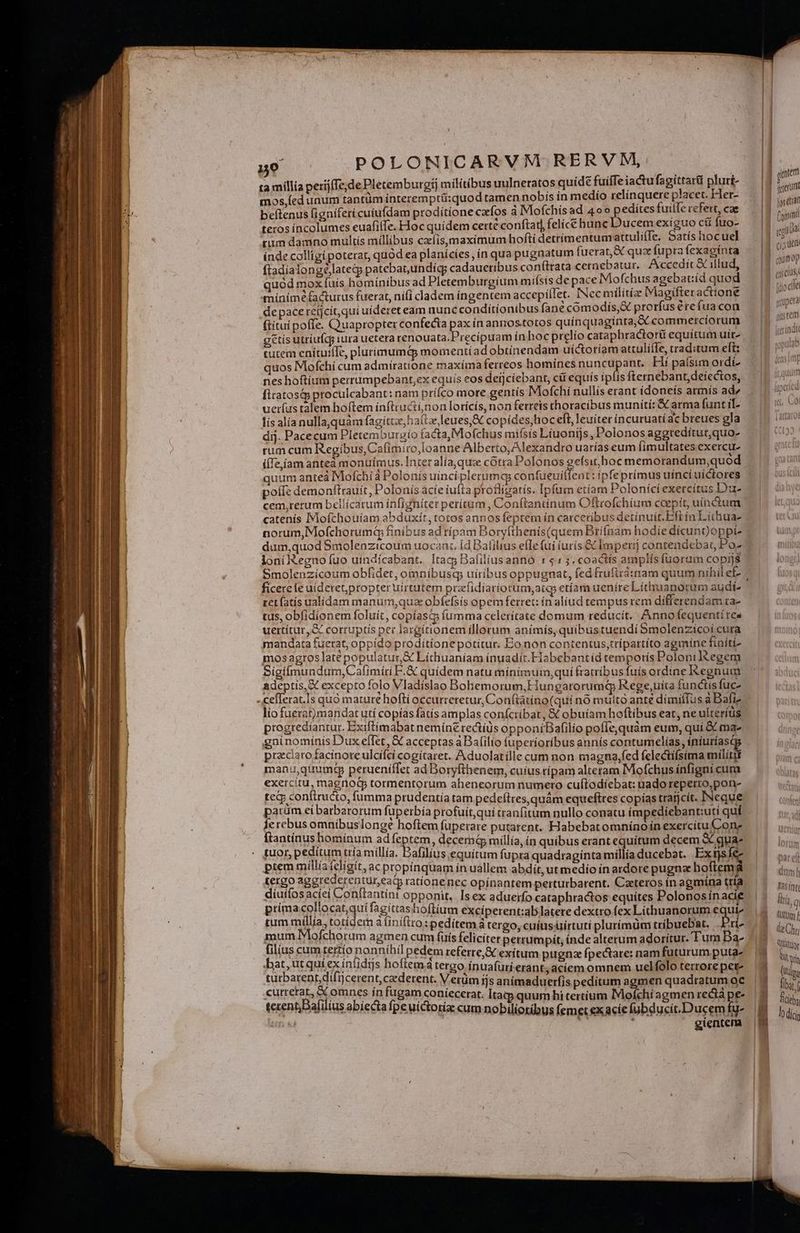 150 POLONICARVM RERVM,
ta millia perijsse, de Pletemburgij militibus uulneratos quidē fuisse iactu sagittarū pluri-
mos, sed unum tantùm interemptū: quod tamen nobis in medio relinquere placet. Her-
bestenus signiferi cuiusdam proditione cæsos à Moschis ad 400 pedites fuisse refert, cæ
teros incolumes euasisse. Hoc quidem certè constat, felicē hunc Ducem exiguo cū suo-
rum damno multis millibus cæsis, maximum hosti detrimentum attulisse. Satis hoc uel
inde colligi poterat, quòd ea planicies, in qua pugnatum fuerat, & quæ supra sexaginta
stadia longè lateq́; patebat, undiq́; cadaueribus constrata cernebatur. Accedit & illud,
quòd mox suis hominibus ad Pletemburgium missis de pace Moschus agebat: id quod
minimè facturus fuerat, nisi cladem ingentem accepisset. Nec militiæ Magister actionē
de pace reijcit, qui uideret eam nunc conditionibus sanè cōmodis, & prorsus è re sua con
stitui posse. Quapropter confecta pax in annos totos quinquaginta, & commerciorum
gētis utriusq; iura uetera renouata. Præcipuam in hoc prelio cataphractorū equitum uir-
tutem enituisse, plurimumq́; momenti ad obtinendam uictoriam attulisse, traditum est:
quos Moschi cum admiratione maxima ferreos homines nuncupant. Hi passim ordi-
nes hostium perrumpebant, ex equis eos deijciebant, cū equis ipsis sternebant, deiectos,
stratosq́; proculcabant: nam prisco more gentis Moschi nullis erant idoneis armis ad-
uersus talem hostem instructi, non loricis, non ferreis thoracibus muniti: & arma sunt il-
lis alia nulla, quàm sagittæ, hastæ leues, & copides, hoc est, leuiter incuruati ac breues gla
dij. Pace cum Pletemburgio facta, Moschus missis Liuonijs, Polonos aggreditur, quo-
rum cum Regibus, Casimiro, Ioanne Alberto, Alexandro uarias eum simultates exercu-
isse, iam anteà monuimus. Inter alia, quæ cōtra Polonos gessit, hoc memorandum, quòd
quum anteà Moschi à Polonis uinci plerumq; consueuissent: ipse primus uinci uictores
posse demonstrauit, Polonis acie iusta profligatis. Ipsum etiam Polonici exercitus Du-
cem, rerum bellicarum insigniter peritum, Constantinum Ostroschium cœpit, uinctum
catenis Moschouiam abduxit, totos annos septem in carceribus detinuit. Est in Lithua-
norum, Moschorumq́; finibus ad ripam Borysthenis (quem Brisnam hodie dicunt) oppi-
dum, quod Smolenzicoum uocant. id Basilius esse sui iuris & Imperij contendebat, Po-
loni Regno suo uindicabant. Itaq; Basilius anno 1513. coactis amplis suorum copijs
Smolenzicoum obsidet, omnibusq; uiribus oppugnat, sed frustrà: nam quum nihil ef-
ficere se uideret, propter uirtutem præsidiariorum, atq; etiam uenire Lithuanorum audi-
ret satis ualidam manum, quæ obsessis opem ferret: in aliud tempus rem differendam ra-
tus, obsidionem soluit, copiasq́; summa celeritate domum reducit. Anno sequenti res
uertitur, & corruptis per largitionem illorum animis, quibus tuendi Smolenzicoi cura
mandata fuerat, oppido proditione potitur. Eo non contentus, tripartito agmine finiti-
mos agros latè populatur, & Lithuaniam inuadit. Habebant id temporis Poloni Regem
Sigismundum, Casimiri F. & quidem natu minimum, qui fratribus suis ordine Regnum
adeptis, & excepto solo Vladislao Bohemorum, Hungarorumq́; Rege, uita functis suc-
cesserat. Is quò maturè hosti occurreretur, Constātino (qui nō multo antè dimissus à Basi-
lio fuerat) mandat uti copias satis amplas conscribat, & obuiam hostibus eat, ne ulteriùs
progrediantur. Existimabat neminē rectiùs opponi Basilio posse, quàm eum, qui & ma-
gni nominis Dux esset, & acceptas à Basilio superioribus annis contumelias, iniuriasq́;
præclaro facinore ulcisci cogitaret. Aduolat ille cum non magna, sed selectissima militū
manu, quumq́; peruenisset ad Borysthenem, cuius ripam alteram Moschus insigni cum
exercitu, magnoq́; tormentorum aheneorum numero custodiebat: uado reperto, pon-
teq́; constructo, summa prudentia tam pedestres, quàm equestres copias traijcit. Neque
parùm ei barbarorum superbia profuit, qui transitum nullo conatu impediebant: uti qui
se rebus omnibus longè hostem superare putarent. Habebat omnino in exercitu Con-
stantinus hominum ad septem, decemq́; millia, in quibus erant equitum decem & qua-
tuor, peditum tria millia. Basilius equitum supra quadraginta millia ducebat. Ex ijs se-
ptem millia seligit, ac propinquam in uallem abdit, ut medio in ardore pugnæ hostem à
tergo aggrederentur, eaq́; ratione nec opinantem perturbarent. Cæteros in agmina tria
diuisos aciei Constantini opponit. Is ex aduerso cataphractos equites Polonos in acie
prima collocat, qui sagittas hostium exciperent: ab latere dextro sex Lithuanorum equi-
tum millia, totidem à sinistro: peditem à tergo, cuius uirtuti plurimùm tribuebat. Pri-
mum Moschorum agmen cum suis feliciter perrumpit, inde alterum adoritur. Tum Ba-
silius cum tertio nonnihil pedem referre, & exitum pugnæ spectare: nam futurum puta-
bat, ut qui ex insidijs hostem à tergo inuasuri erant, aciem omnem uel solo terrore per-
turbarent, disijcerent, cæderent. Verùm ijs animaduersis peditum agmen quadratum oc
currerat, & omnes in fugam coniecerat. Itaq; quum hi tertium Moschi agmen rectà pe-
terent, Basilius abiecta spe uictoriæ cum nobilioribus semet ex acie subducit. Ducem fu-
gientem